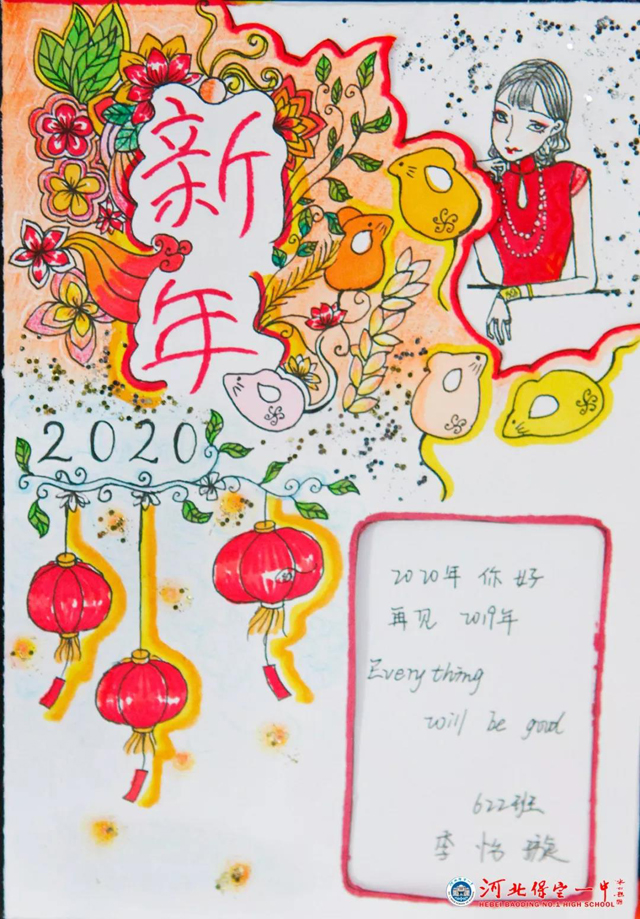 新
年
2020
2020年 你好
再见 2019年
Everything
will be good
622班
李怡璇
河北保定一中
HEBEI BAODING NO.1 HIGH SCHOOL